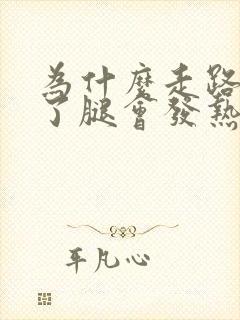 為什麼走路
了腿會發熱
平凡心